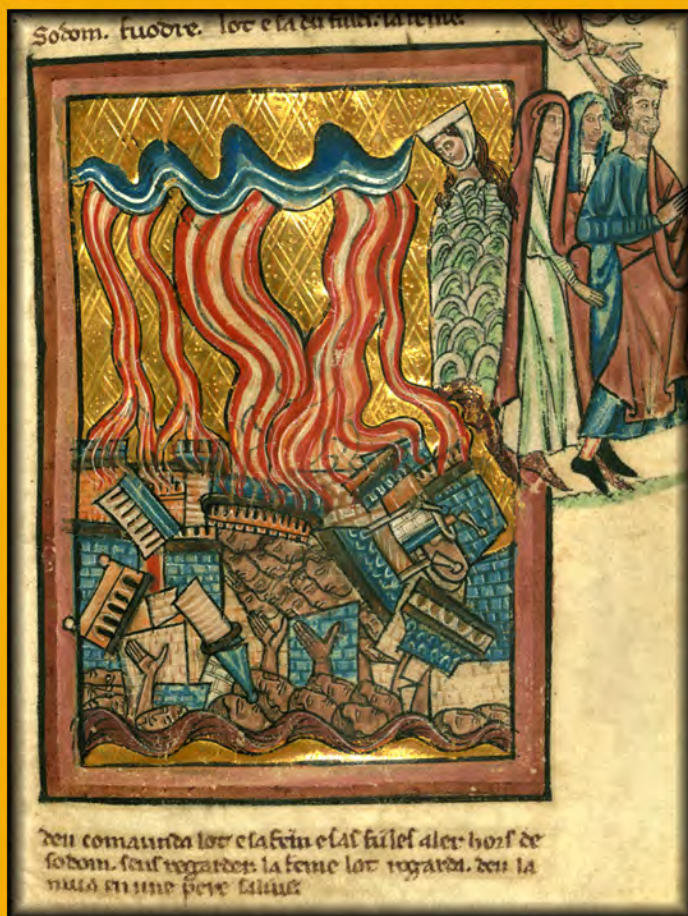 Sodom. fuodre. lot e sa
deu comaunda lot e sa fem e sas filles aler hors de
sodom. sens regarder. la feme lot regarda. deu la
mua en une pere